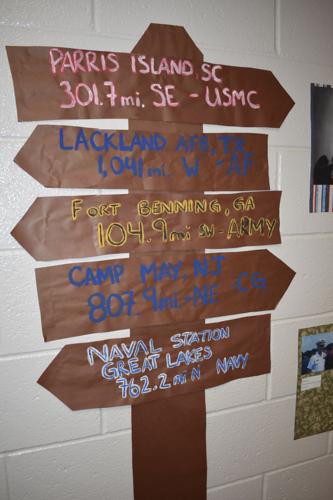 PARRIS ISLAND, SC
301.7 mi. SE - USMC
LACKLAND AFB, TX
1,041 mi. W - AF
FORT BENNING, GA
104.9 mi SW - ARMY
CAMP MAY, NJ
807.9 mi. - NE - CG
NAVAL STATION
GREAT LAKES
762.2 mi N NAVY